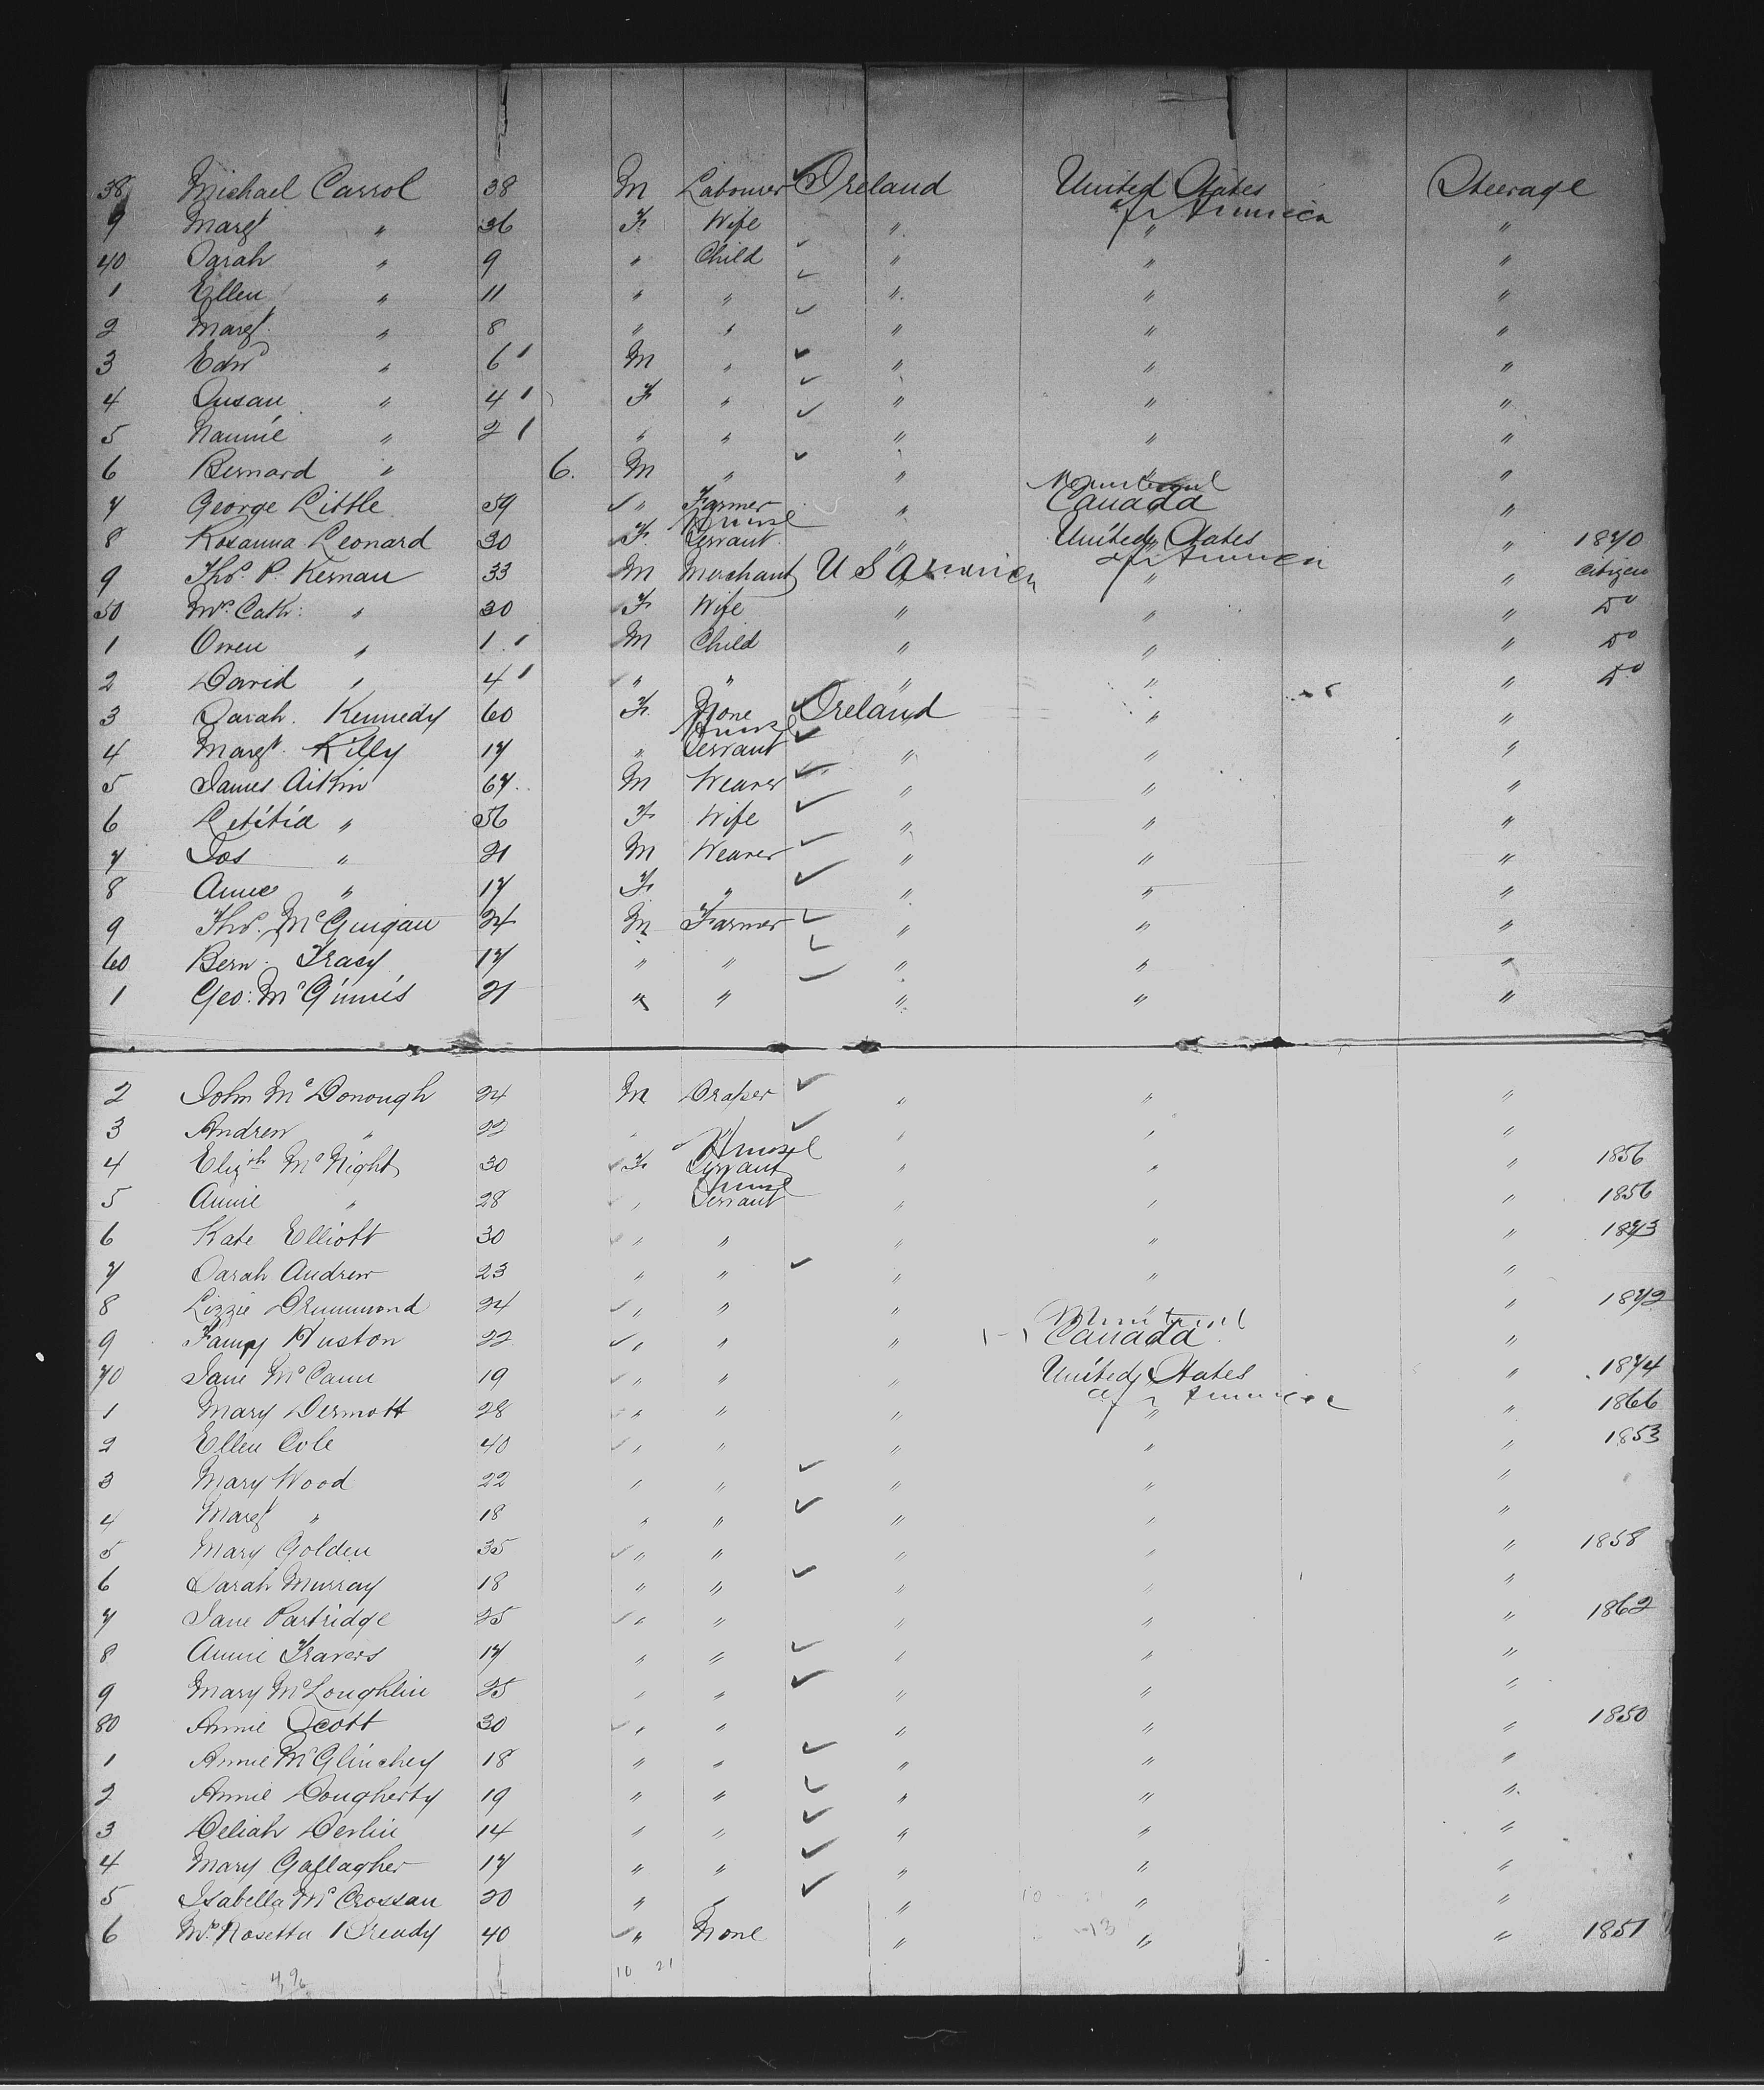 38 Michael Carrol 38 M Labourer Ireland United States of America Steerage
9 Margt " 36 F Wife " " "
40 Sarah " 9 " Child " " "
1 Ellen " 11 " " " " "
2 Margt " 8 " " " " "
3 Edwd " 6 M " " " "
4 Susan " 4 F " " " "
5 Nannie " 2 " " " " "
6 Bernard " 6 M " " " "
7 George Little 59 " Farmer " Montreal Canada "
8 Rosanna Leonard 30 F House Servant " United States of America " 1870
9 Thos. P. Kernan 33 M Merchant U S America " " Citizen
50 Mrs. Cath: " 30 F Wife " " " Do
1 Owen " 1 M Child " " " Do
2 David " 4 " " " " " Do
3 Sarah Kennedy 60 F None Ireland " "
4 Margt. Killy 17 " House Servant " " "
5 James Aitkin 67 M Weaver " " "
6 Letitia " 56 F Wife " " "
7 Jos " 21 M Weaver " " "
8 Annie " 17 F " " " "
9 Thos. McGuigan 24 M Farmer " " "
60 Bern. Tracy 17 " " " " "
1 Geo: McGinnis 21 " " " " "
2 John McDonough 24 M Draper " " "
3 Andrew " 22 " " " " "
4 Elizth McNight 30 F House Servant " " " 1856
5 Annie " 28 " House Servant " " " 1856
6 Kate Elliott 30 " " " " " 1873
7 Sarah Andrew 23 " " " " "
8 Lizzie Drummond 24 " " " " " 1872
9 Fanny Huston 22 " " " Montreal Canada "
70 Jane McCann 19 " " " United States of America " 1874
1 Mary Dermott 28 " " " " " 1866
2 Ellen Cole 40 " " " " " 1853
3 Mary Wood 22 " " " " "
4 Margt " 18 " " " " "
5 Mary Golden 35 " " " " " 1858
6 Sarah Murray 18 " " " " "
7 Jane Partridge 25 " " " " " 1862
8 Annie Travers 17 " " " " "
9 Mary McLoughlin 25 " " " " "
80 Annie Scott 30 " " " " " 1850
1 Annie McGlinchey 18 " " " " "
2 Annie Dougherty 19 " " " " "
3 Deliah Devlin 14 " " " " "
4 Mary Gallagher 17 " " " " "
5 Isabella McCrossan 20 " " " " "
6 Mrs. Rosetta 40 " None " " " 1851
10 21